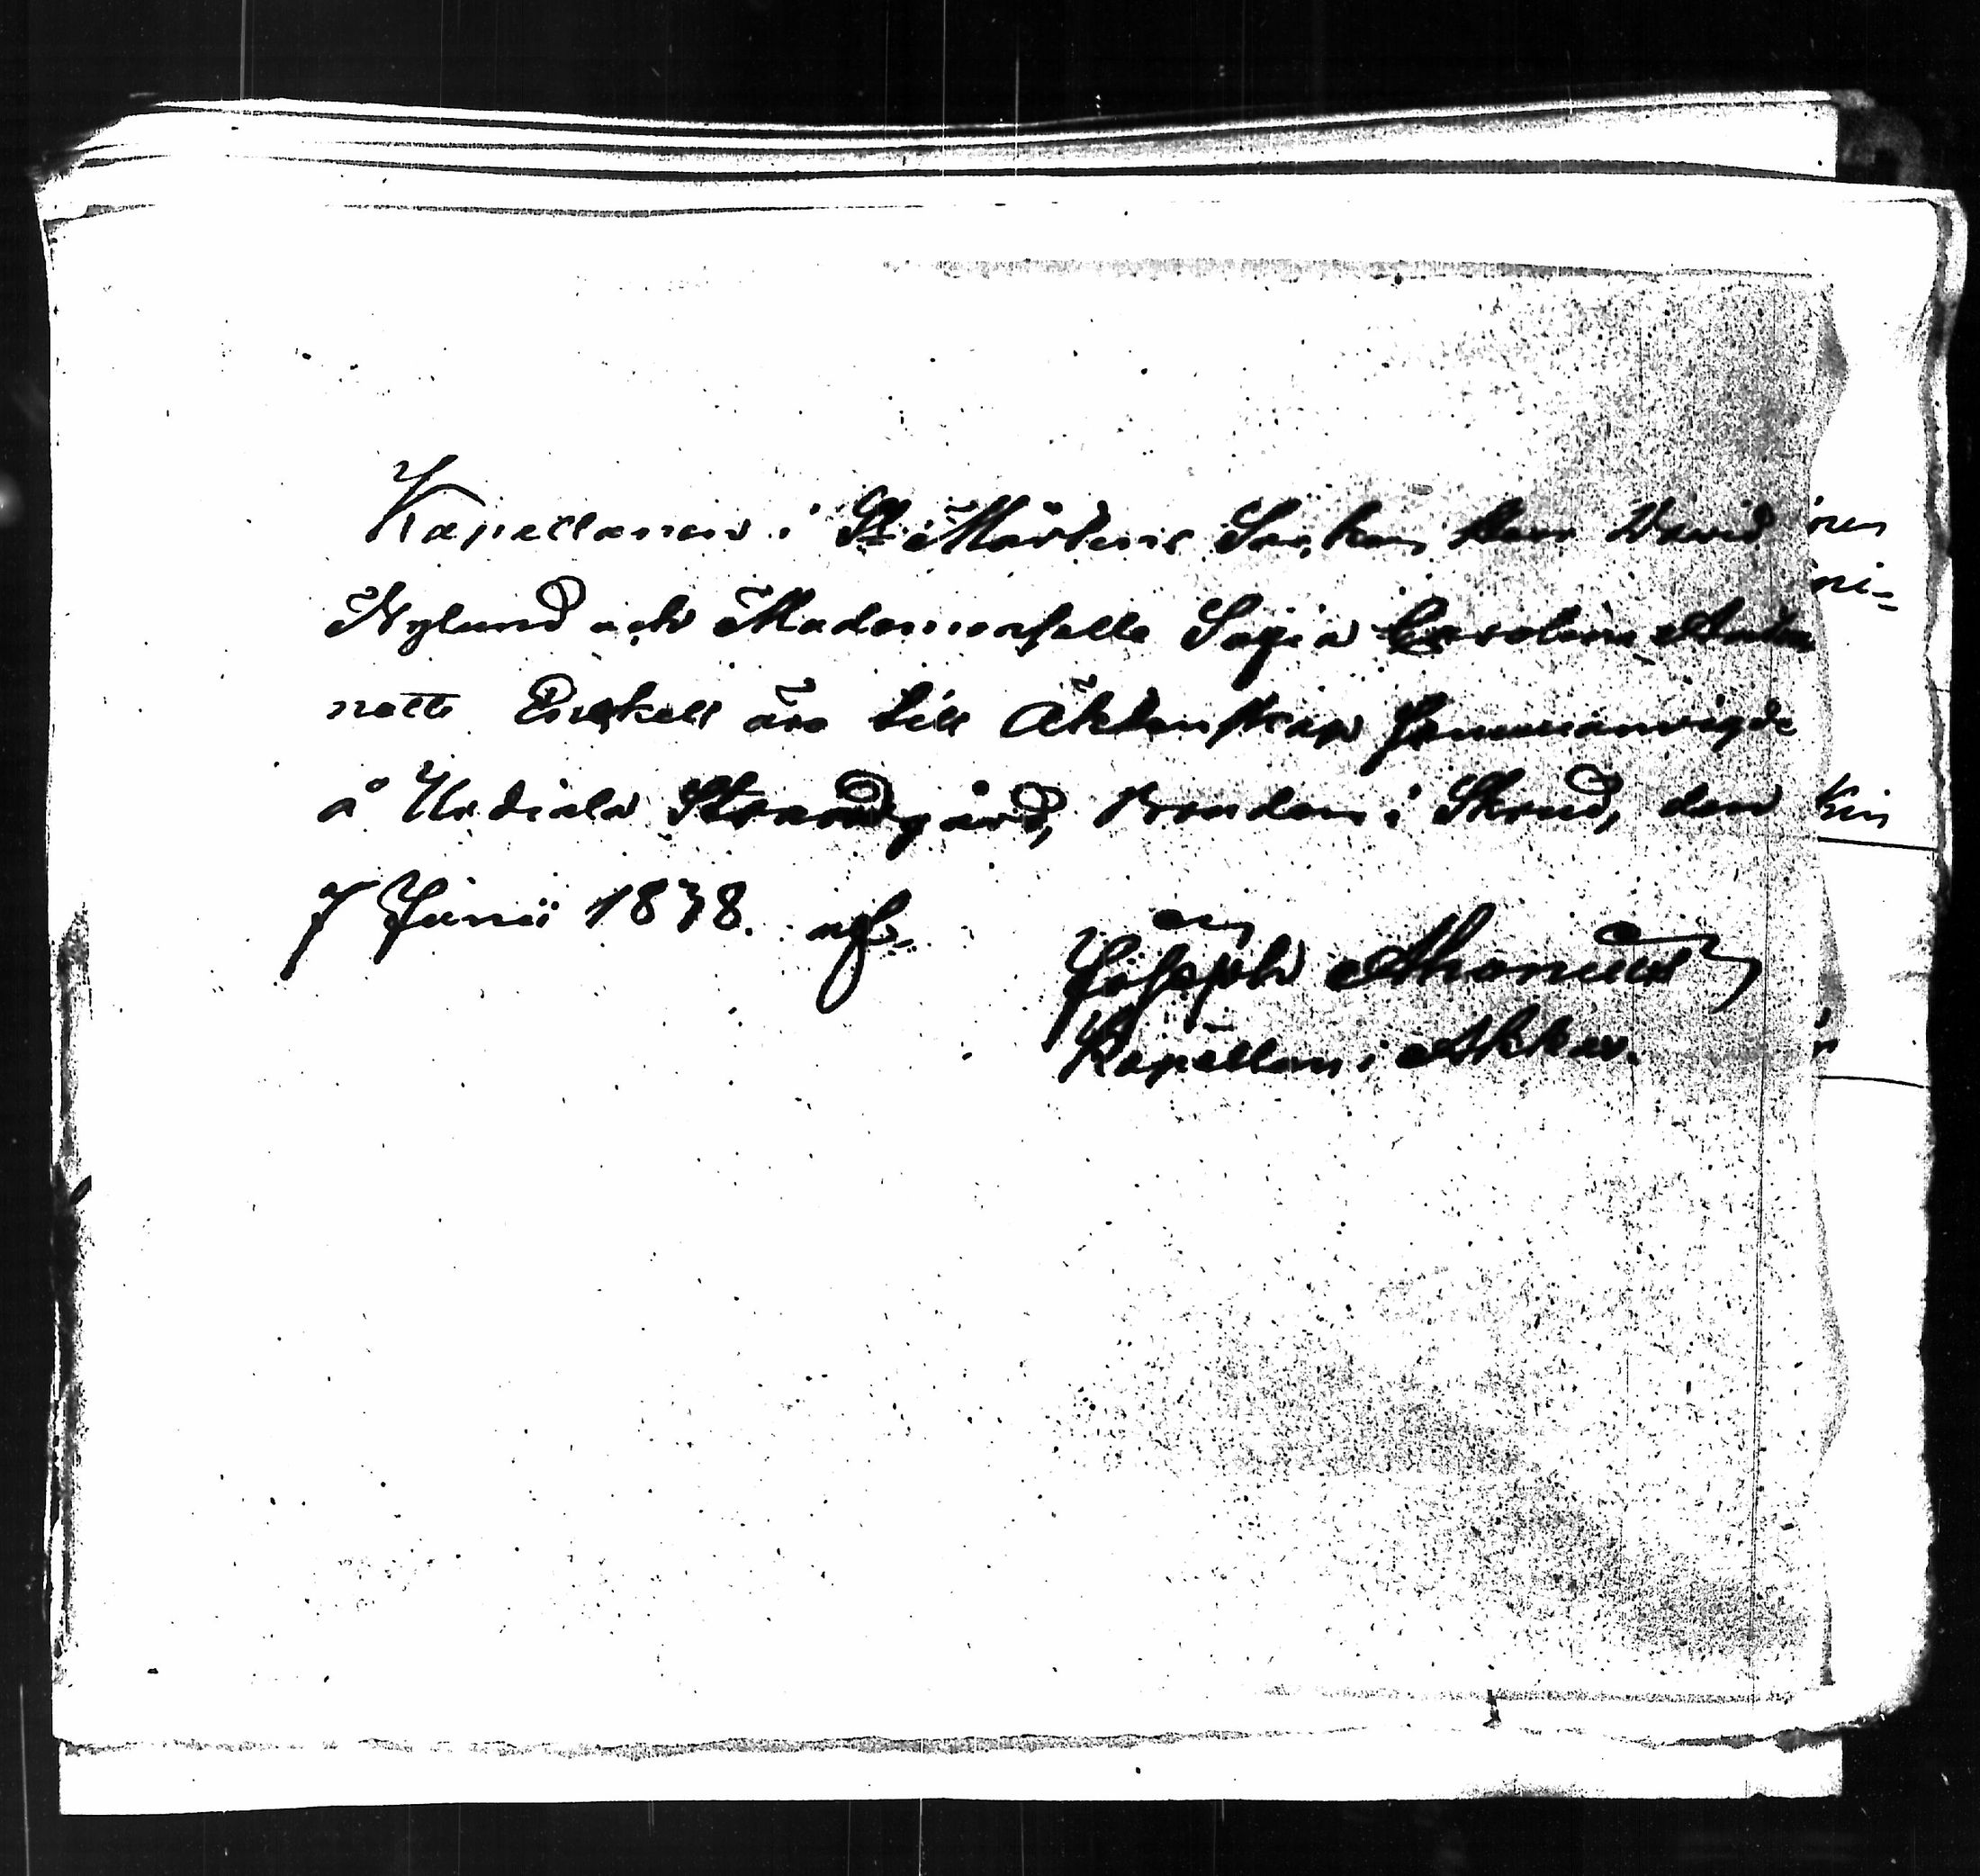 Kapellanen i St Mårtens Socken Herr David
Nylund och Mademoiselle Sofia Carolina Antoi
nette Enckell äro till Äktenskap sammanvigde
å Urdiala Strandgård, Bruden i Skrud, den
7 Junii 1838. af
Joseph Ahonius
Kapellan i Akkas.